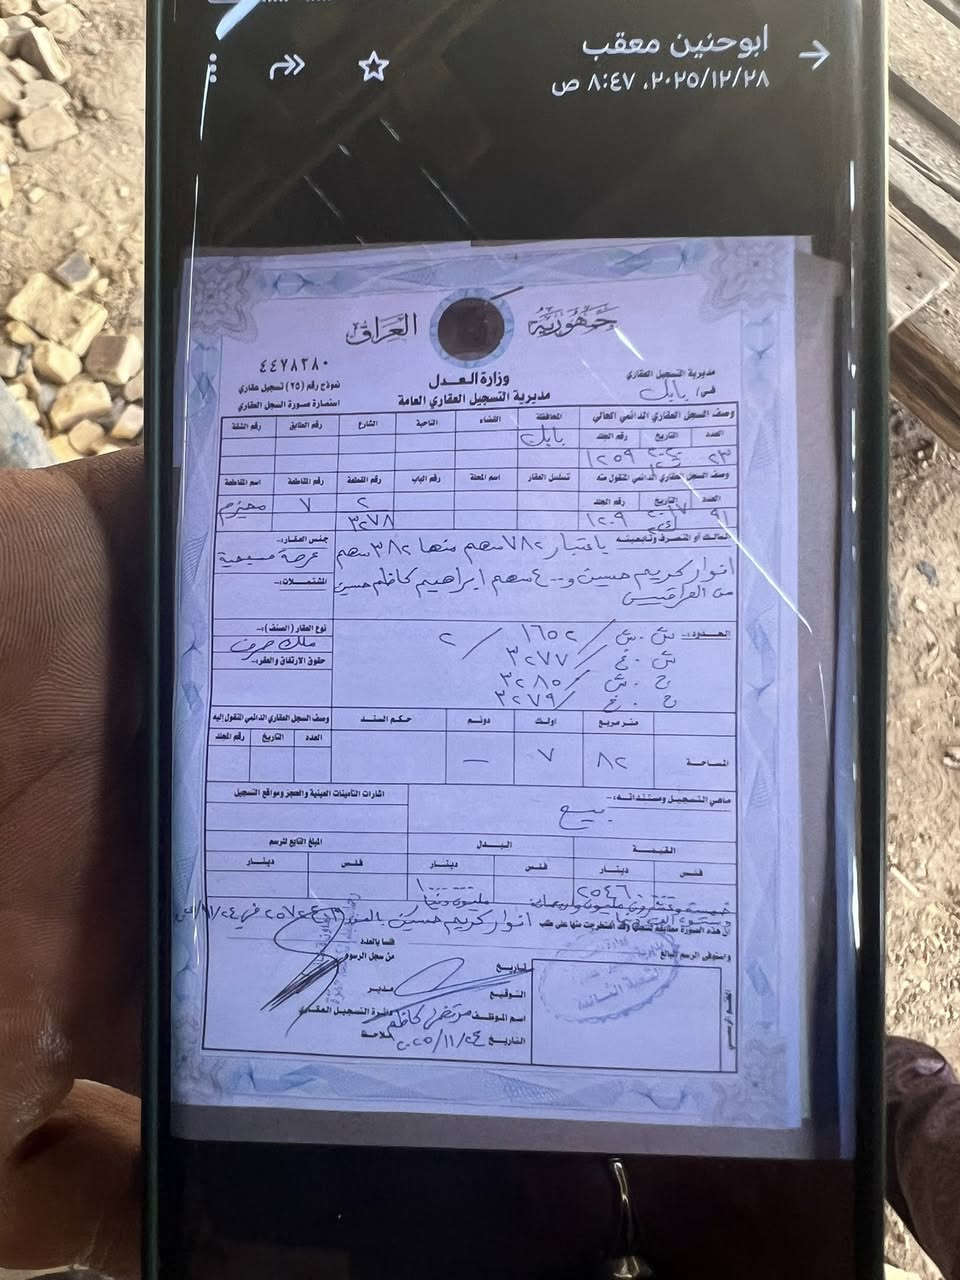 ابوحنين معقب
٢٠٢٥/١٢/٢٨، ٨:٤٧ ص
جمهورية العراق
٤٤٧٨٣٨٠
وزارة العدل
مديرية التسجيل العقاري العامة
مديرية التسجيل العقاري
في/ بابل
نموذج رقم (٢٥) تسجيل عقاري
استمارة صورة السجل العقاري
وصف السجل العقاري الدائمي الحالي
المحافظة القضاء الناحية الشارع رقم الطابق رقم الشقة
العدد التاريخ رقم الجلد
بابل
٢٣ ١٢٥٩
وصف السجل العقاري الدائمي المنقول منه
تسلسل العقار اسم المحلة رقم الباب رقم القطعة رقم المقاطعة اسم المقاطعة
العدد التاريخ رقم الجلد
٩١ ١٢٠٩
٢
٣٢٧٨
٧
المالك أو المتصرف وتابعيته
باعتبار ٧٨٢ سهم منها ٣٨٢ سهم
انوار كريم حسين و ٤٠٠ سهم ابراهيم كاظم حسين
من العراقيين
جنس العقار:-
عرصة
المشتملات:-
الحدود:-
ش . ش ١٦٥٢ / ٢
ش . غ ٣٢٧٧ /
ج . ش ٣٢٨٥ /
ج . غ ٣٢٧٩ /
نوع العقار (الصنف):-
ملك صرف
حقوق الارتفاق والعقر:-
متر مربع اولك دونم حكم السند
المساحة
٨٢ ٧ —
وصف السجل العقاري الدائمي المنقول اليه
العدد التاريخ رقم الجلد
ماهي التسجيل ومستنداته:-
بيع
اشارات التأمينات العينية والحجز ومواقع التسجيل
القيمة البدل المبلغ التابع للرسم
فلس دينار فلس دينار فلس دينار
ان هذه الصورة مطابقة لسجلها وقد استخرجت منها على طلب
انوار كريم حسين
واستوفى الرسم البالغ
فلسا بالعدد
من سجل الرسوم
لتاريخ
التوقيع
اسم الموظف مرتضى كاظم
التاريخ ٢٠٢٥/١١/٢٤
مدير
دائرة التسجيل العقاري
ملاحظ
الختم الرسمي